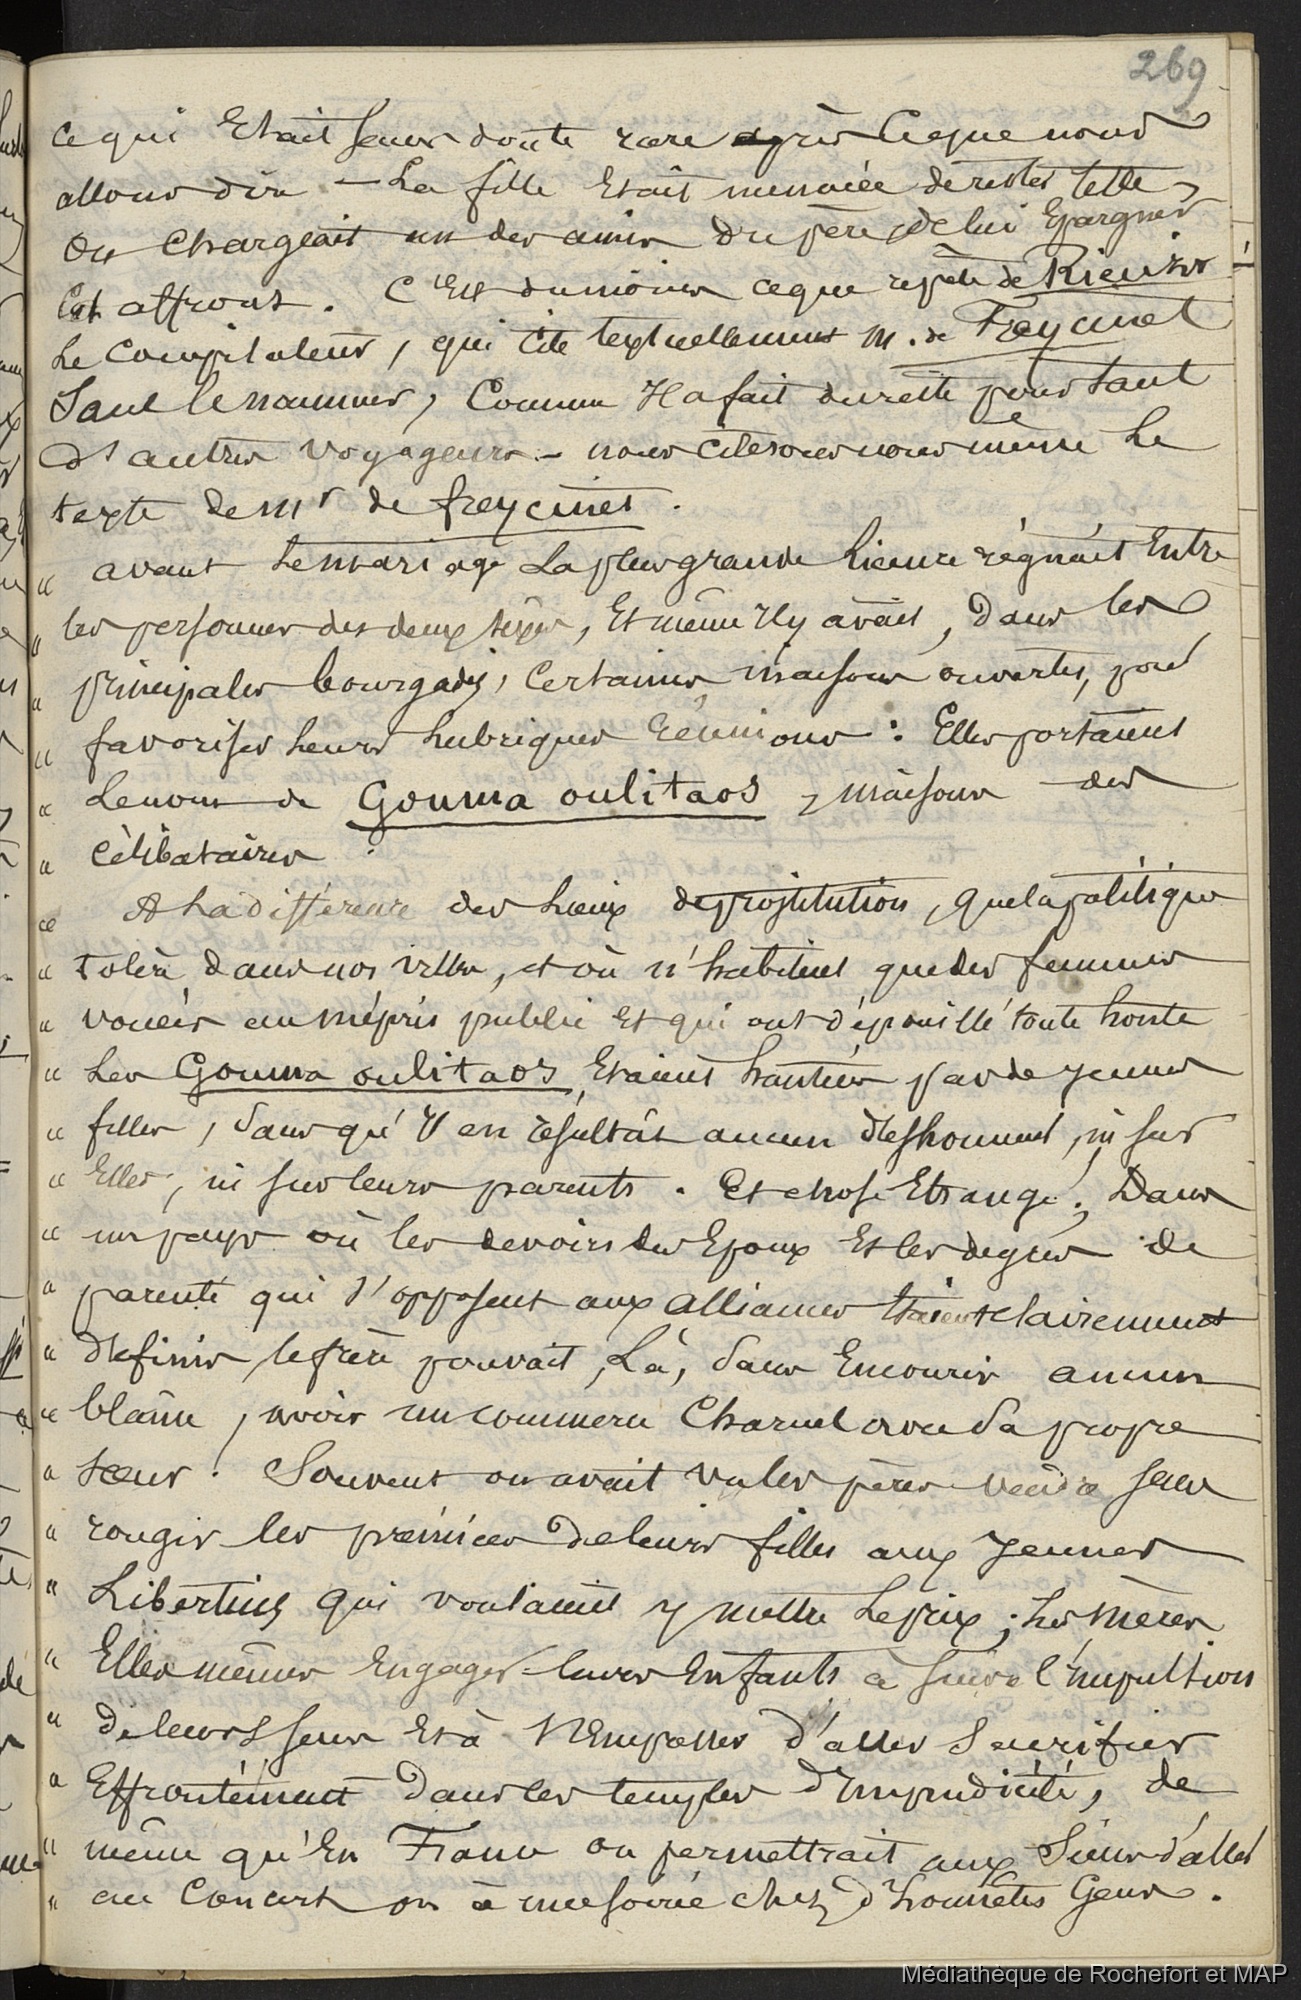 269
ce qui Etait sans doute rare après ce que nous
allons dire — La fille Etait menacée de rester telle,
On chargeait un des amis du père, de lui Epargner
Cet affront. C'Est du moins ce que repète de Rienzi
Le Compilateur, qui Cite textuellement M. de Freycinet
Sans le nommer, Comme Il a fait du reste pour tant
d'autres voyageurs — nous citerons nous même Le
texte de Mr de freycinet.
" avant Le mariage La plus grande licence régnait Entre
" les personnes des deux sexes, Et même Il y avait, Dans les
" principales bourgades, Certaines maisons ouvertes, pour
" favoriser Leurs Lubriques réunions : Elles portaient
" Le nom de Gouma oulitaos, maisons des
" Célibataires.
" A La différence des Lieux de prostitution, que la politique
" tolère dans nos villes, et où n'habitent que des femmes
" vouées au mépris public Et qui ont dépouillé toute honte
" Les Gouma oulitaos Etaient hantées par de jeunes
" filles, sans qu'Il en résultât aucun déshonneur, ni sur
" Elles, ni sur leurs parents. Et chose Etrange, Dans
" un pays où les devoirs des Epoux Et les degrés de
" parenté qui s'opposent aux alliances Etaient clairement
" définis, le frère pouvait, Là, sans Encourir aucun
" blâme, avoir un commerce Charnel avec sa propre
" sœur. Souvent on avait vu les pères vendre sans
" rougir les prémices de leurs filles aux jeunes
" Libertins qui voulaient y mettre Le prix ; Les mères
" Elles mêmes Engager leurs Enfants à suivre l'impulsion
" de leurs sens Et à s'Empresser d'aller Sacrifier
" Effrontément Dans les temples d'Impudicité, de
" même qu'En France on permettrait aux Siens d'aller
" au Concert ou à une soirée chez d'honnêtes Gens.
Médiathèque de Rochefort et MAP